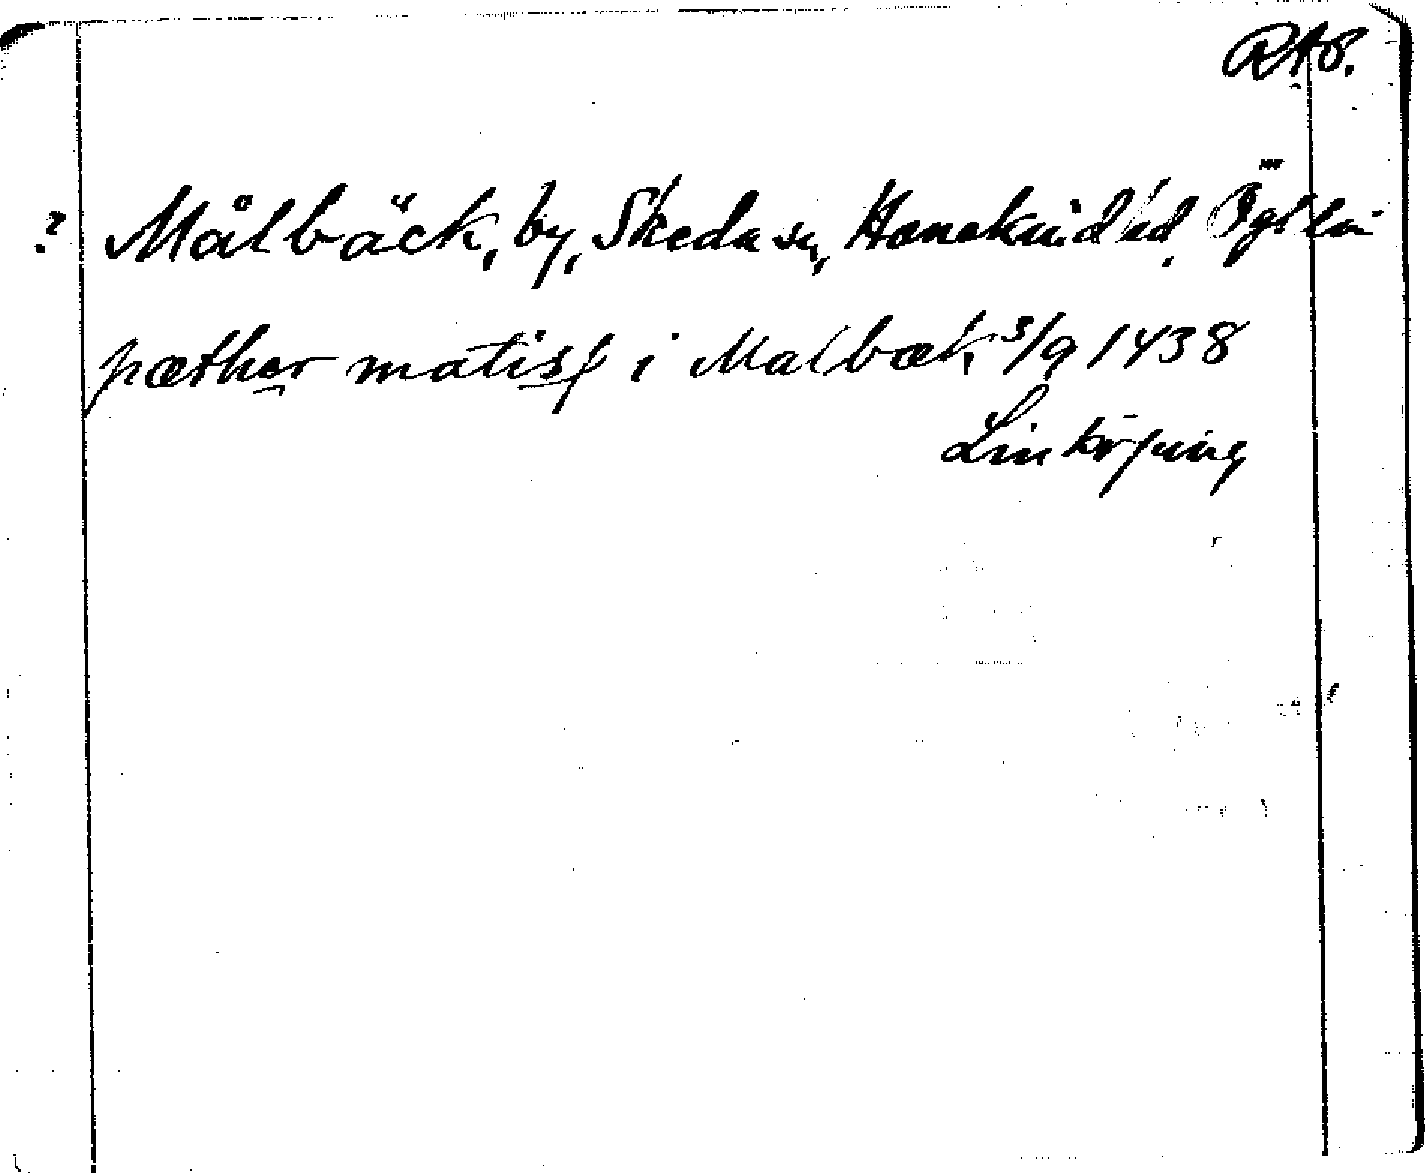 RAP.
? Målbäck, by, Skeda sn, Hanekinds hd. Ögl län
pæther matisf i Malbæk 3/9 1438
Linköping